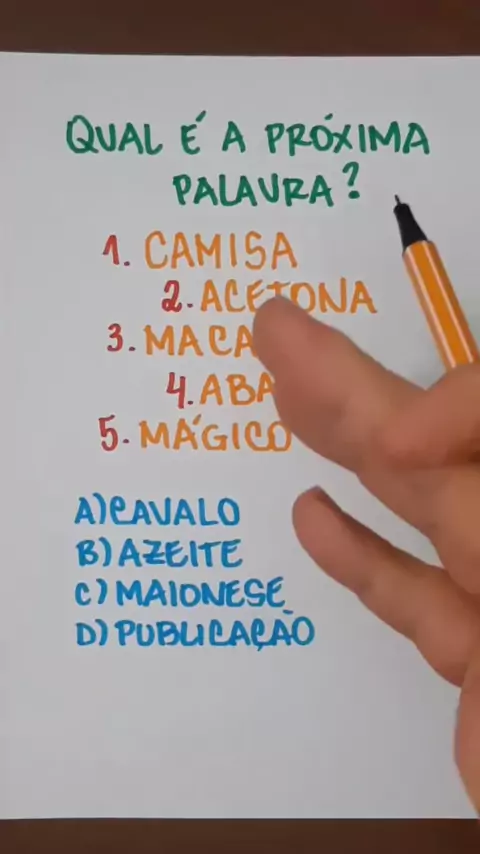 QUAL É A PRÓXIMA
PALAVRA?
1. CAMISA
2. ACETONA
3. MACA
4. ABA
5. MÁGICO
A) CAVALO
B) AZEITE
C) MAIONESE
D) PUBLICAÇÃO